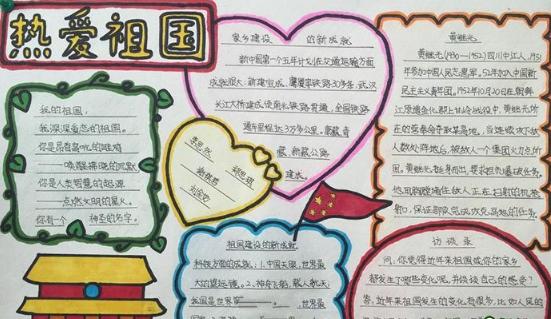 热爱祖国
家乡建设 的新成就
新中国第一个五年计划在交通运输方面
成就很大:新建宝成、鹰厦等铁路30多条,武汉
长江大桥建成使南北铁路贯通,全国铁路
通车里程达3万多公里。康藏、青
藏、新藏公路
建成
黄继光
黄继光(1930—1952)四川中江人,1951
年参加中国人民志愿军,52年加入中国新
民主主义青年团。1952年10月20日在朝鲜
江原道金化郡上甘岭战役中,黄继光所
在的营奉命夺取某高地,当连续攻下敌
人数处阵地后,被敌人一个集团火力点所
阻。黄继光挺身而出,要求担负爆破任务。
他用胸膛堵住敌人正在扫射的机枪
射口,保证部队完成攻克高地的任务。
我的祖国,
我深深爱恋的祖国。
你是昂首高吭的雄鸡
——唤醒拂晓的沉默
你是人类智慧的起源
——点燃文明的星火。
你有一个 神圣的名字,
祖国建设的新成就
科技方面的成就:1.中国天眼,世界最
大的望远镜。2.神舟飞船,载人航天;
我国是世界第
访谈录
问:你觉得近年来祖国或你的家乡
都发生了哪些变化呢,并谈谈自己的感受?
答:近年来祖国发生的变化有很多,比如人民的